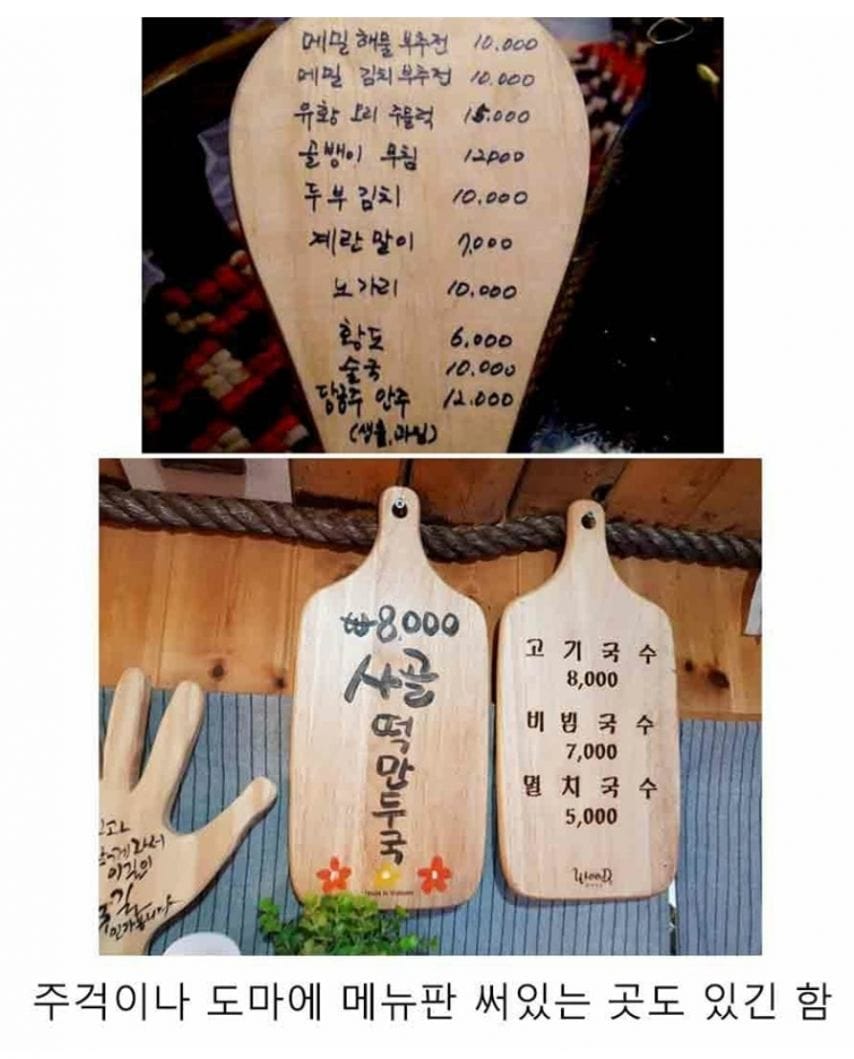 메밀 해물 부추전 10.000
메밀 김치 부추전 10.000
유황 오리 주물럭 15.000
골뱅이 무침 12000
두부 김치 10.000
계란말이 7,000
노가리 10.000
황도 6.000
술국 10.000
땅콩주 안주 12.000
₩8.000
사골
떡
만
두
국
고기국수
8,000
비빔국수
7,000
멸치국수
5,000
주걱이나 도마에 메뉴판 써있는 곳도 있긴 함